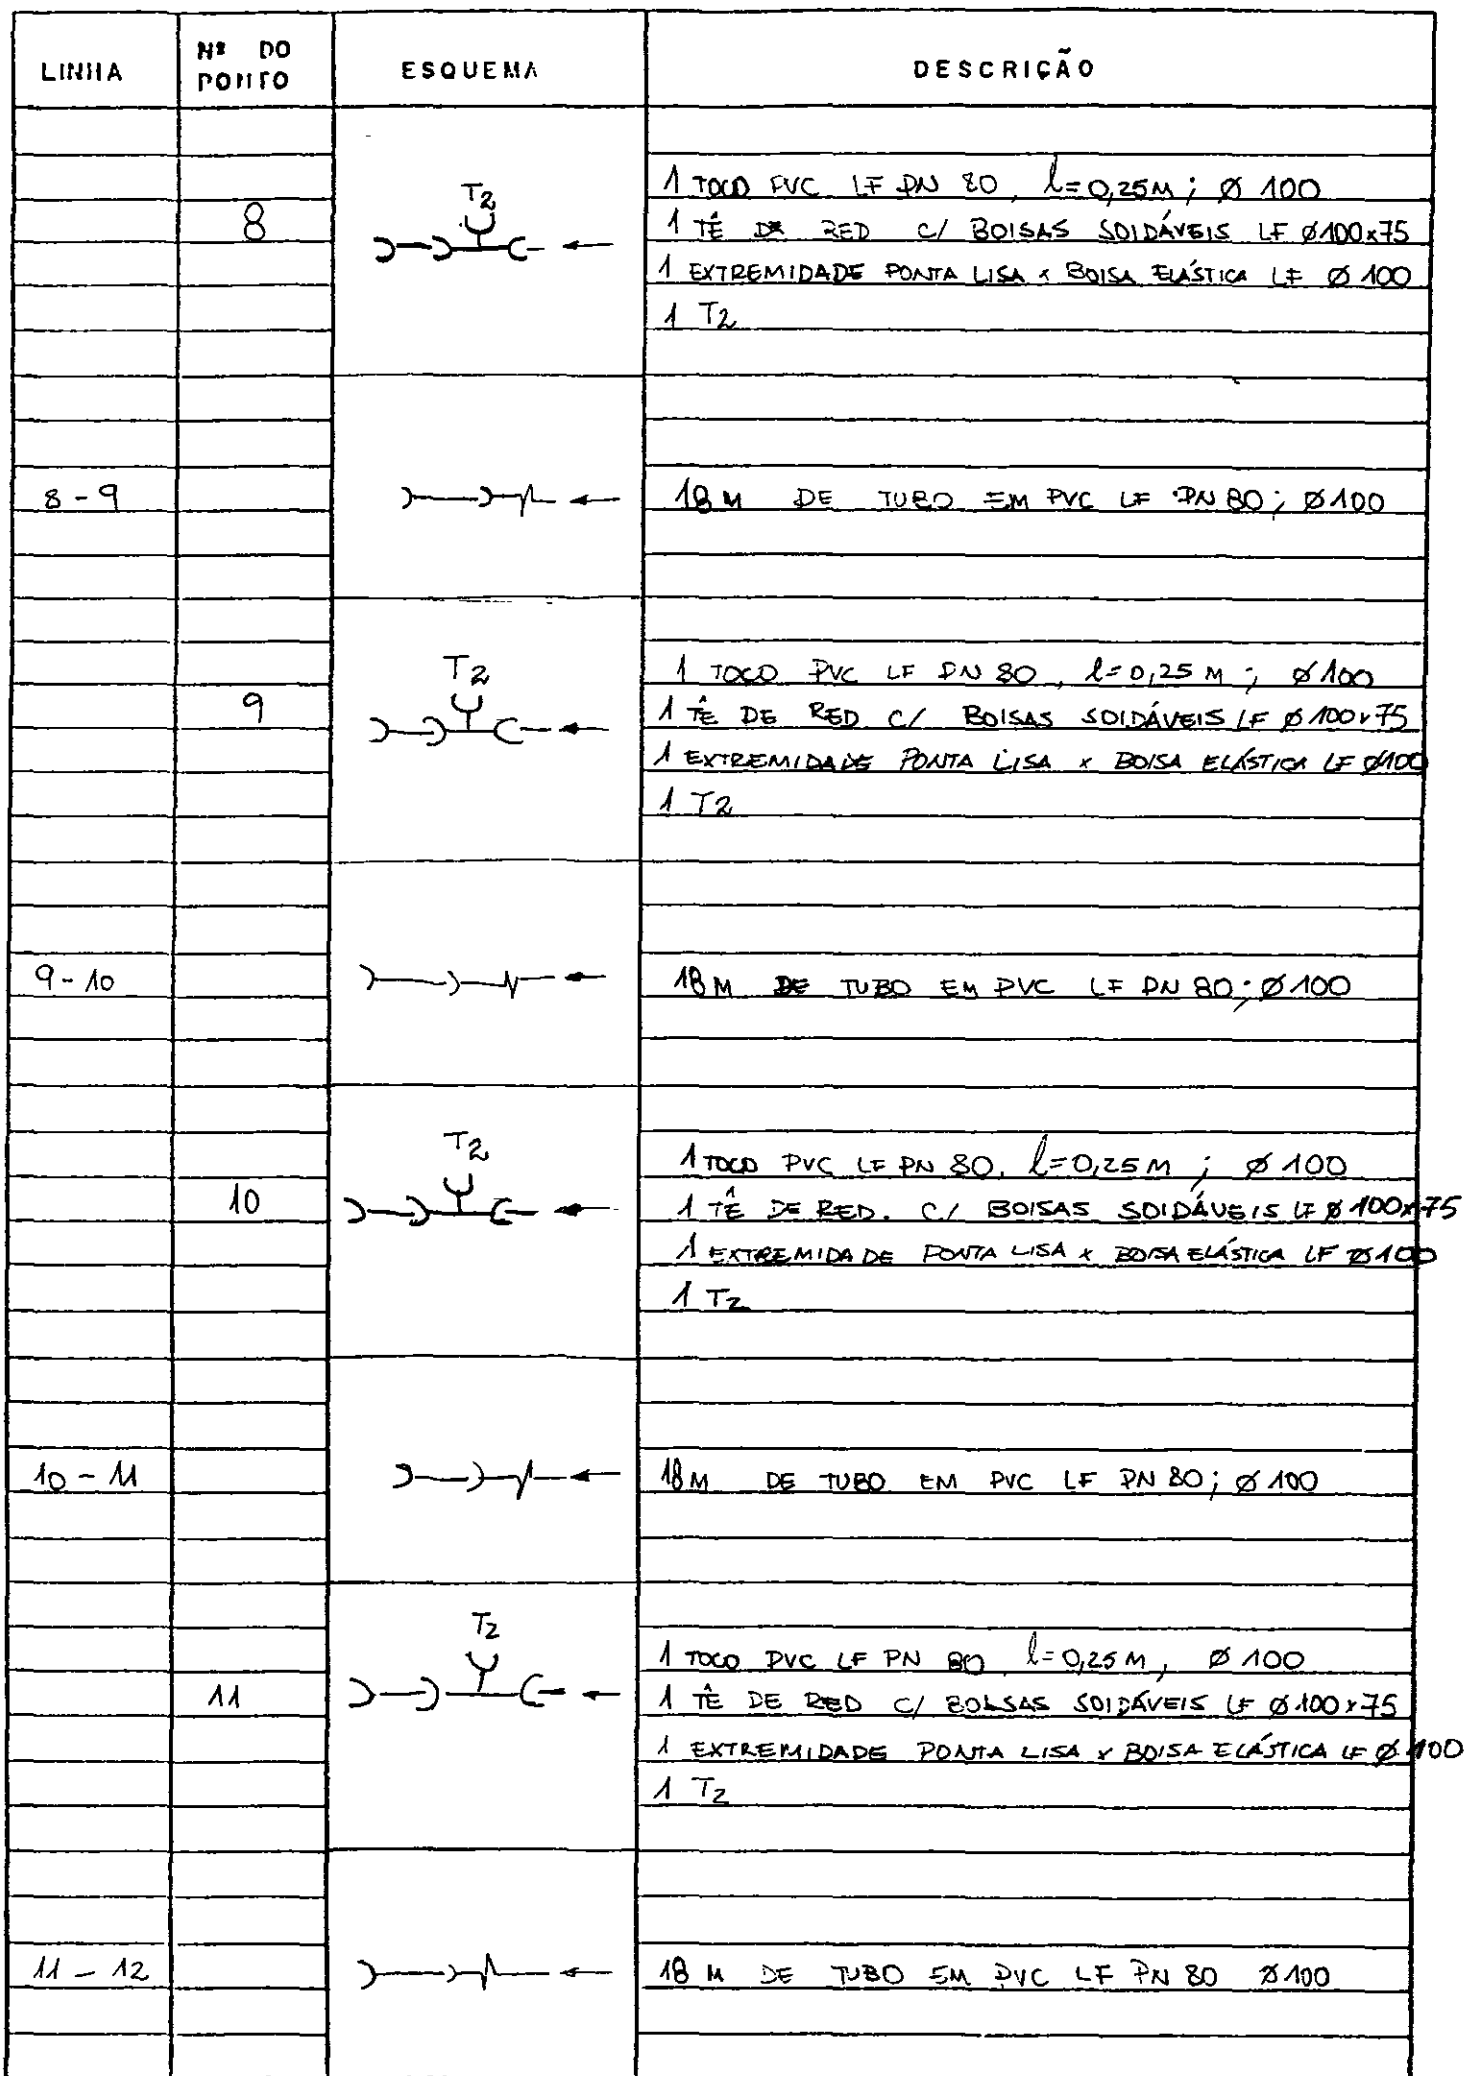 LINHA
Nº DO
PONTO
ESQUEMA
DESCRIÇÃO
8
T2
1 TOCO PVC LF PN 80, l=0,25M; Ø 100
1 TÊ DE RED C/ BOLSAS SOLDÁVEIS LF Ø100x75
1 EXTREMIDADE PONTA LISA x BOLSA ELÁSTICA LF Ø 100
1 T2
8-9
18M DE TUBO EM PVC LF PN 80; Ø100
9
T2
1 TOCO PVC LF PN 80, l=0,25 M; Ø100
1 TÊ DE RED. C/ BOLSAS SOLDÁVEIS LF Ø100x75
1 EXTREMIDADE PONTA LISA x BOLSA ELÁSTICA LF Ø100
1 T2
9-10
18M DE TUBO EM PVC LF PN 80; Ø100
10
T2
1 TOCO PVC LF PN 80, l=0,25M; Ø100
1 TÊ DE RED. C/ BOLSAS SOLDÁVEIS LF Ø100x75
1 EXTREMIDADE PONTA LISA x BOLSA ELÁSTICA LF Ø100
1 T2
10-11
18M DE TUBO EM PVC LF PN 80; Ø100
11
T2
1 TOCO PVC LF PN 80 l=0,25M, Ø100
1 TÊ DE RED C/ BOLSAS SOLDÁVEIS LF Ø100x75
1 EXTREMIDADE PONTA LISA x BOLSA ELÁSTICA LF Ø100
1 T2
11-12
18 M DE TUBO EM PVC LF PN 80 Ø100